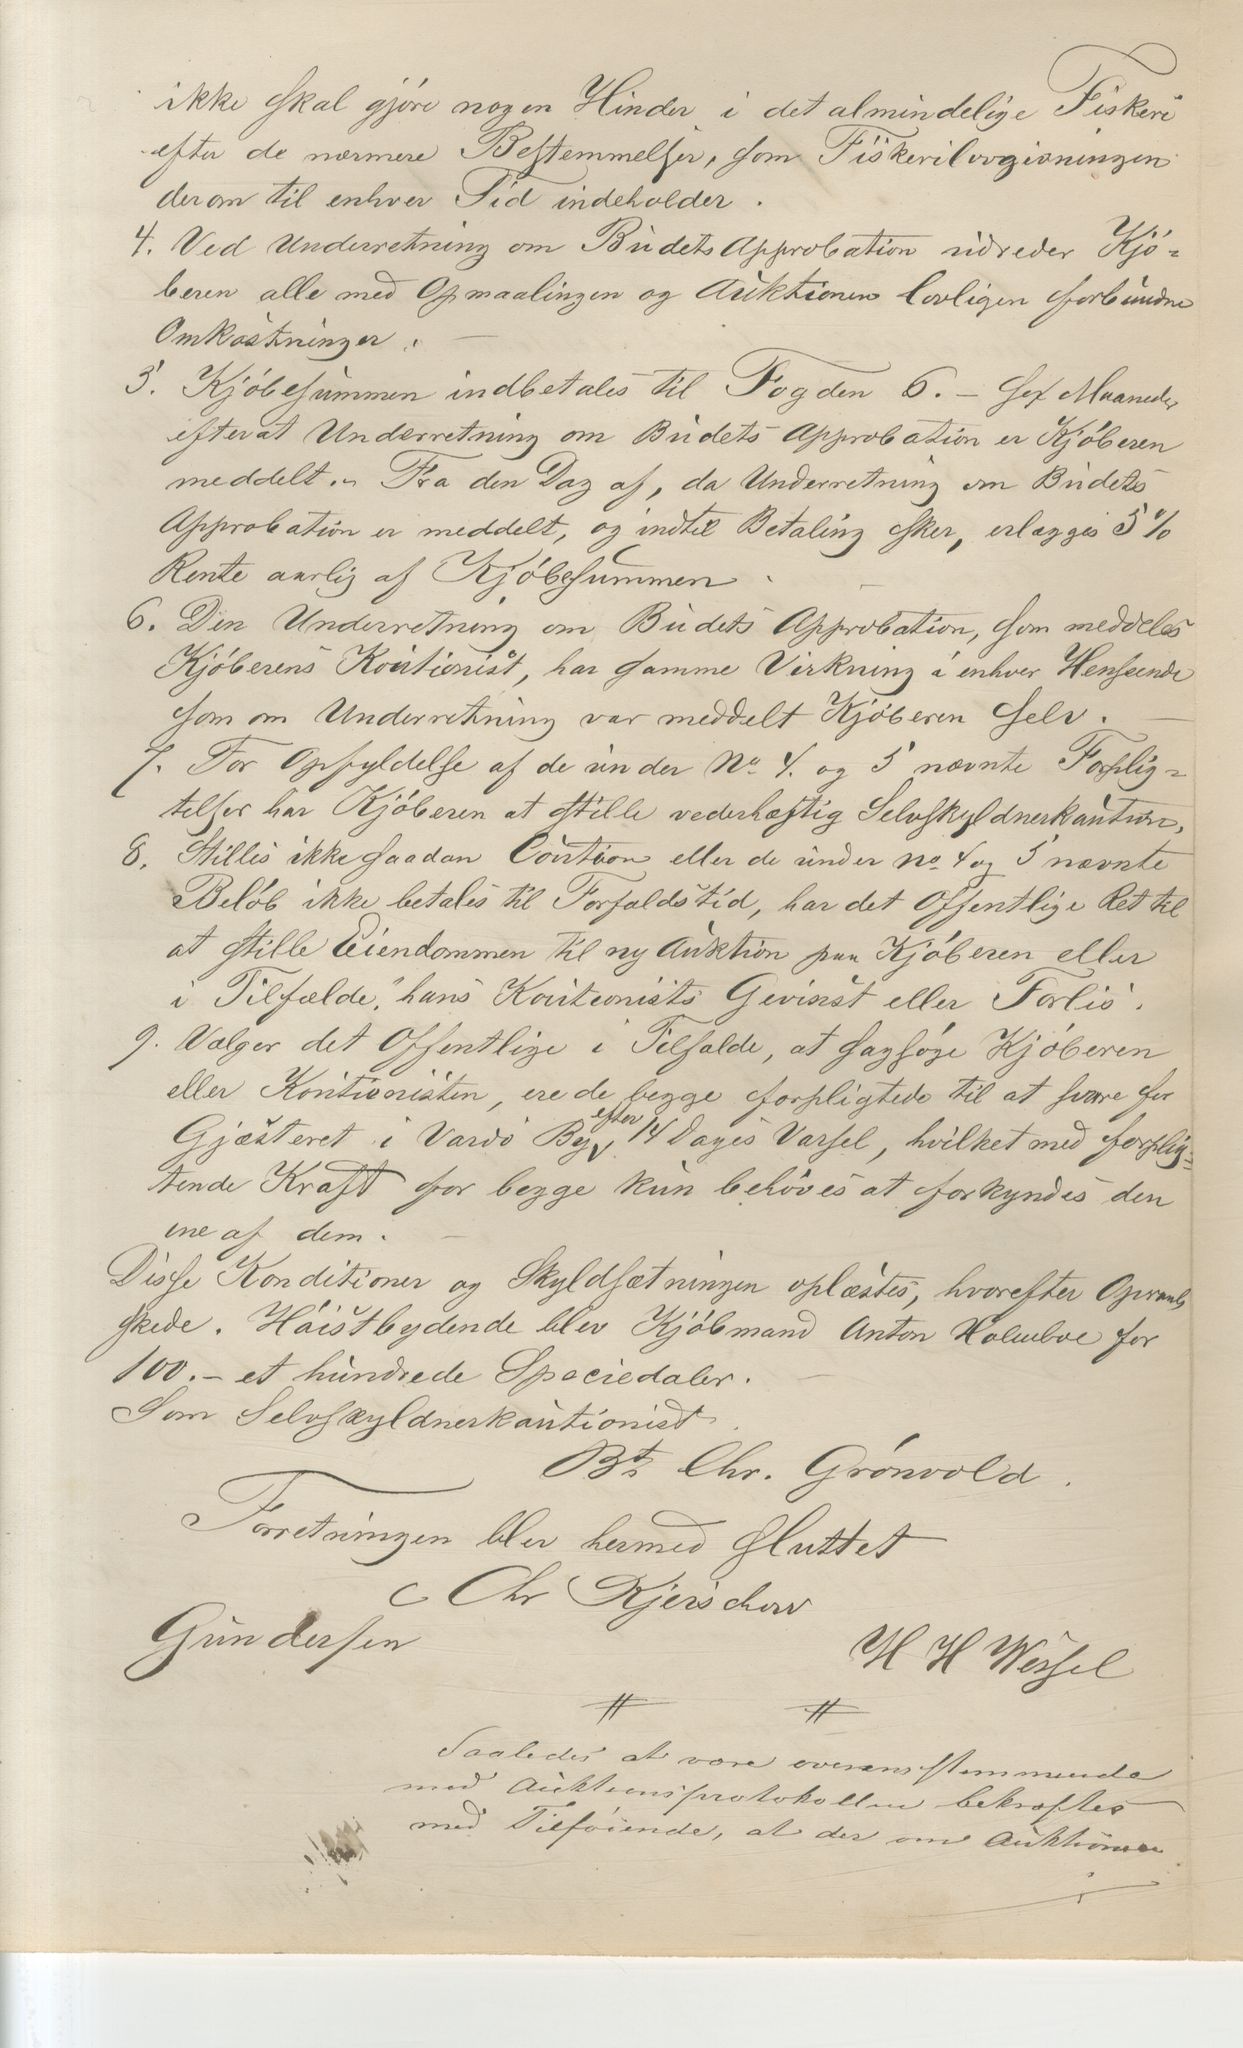 ikke skal gjöre nogen Hinder i det almindelige Fiskeri
efter de nærmere Bestemmelser, som Fiskerilovgivningen
derom til enhver Tid indeholder.
4. Ved Underretning om Budets Approbation udreder Kjö-
beren alle med Opmaalingen og Auktionen lovligen forbundne
Omkostninger. —
5. Kjöbesummen indbetales til Fogden 6. - sex Maaneder
efterat Underretning om Budets Approbation er Kjöberen
meddelt. - Fra den Dag af, da Underretning om Budets
Approbation er meddelt, og indtil Betaling sker, erlægges 5%
Rente aarlig af Kjöbesummen.
6. Den Underretning om Budets Approbation, som meddeles
Kjöberens Kautionist, har samme Virkning i enhver Henseende
som om Underretning var meddelt Kjöberen selv. —
7. For Opfyldelse af de under No 4. og 5 nævnte Forplig-
telser har Kjöberen at stille vederhæftig Selvskyldnerkaution.
8. Stilles ikke saadan Caution eller de under No 4 og 5 nævnte
Belöb ikke betales til Forfaldstid, har det Offentlige Ret til
at stille Eiendommen til ny Auktion paa Kjöberen eller
i Tilfælde, hans Kautionists Gevinst eller Forlis.
9. Vælger det Offentlige i Tilfælde, at sagsöge Kjöberen
eller Kautionisten, ere de begge forpligtede til at svare for
Gjæsteret i Vardö By efter 14 Dages Varsel, hvilket med forplig-
tende Kraft for begge kun behöves at forkyndes den
ene af dem. —
Disse Konditioner og Skyldsætningen oplæstes, hvorefter Opraab
skede. Höistbydende blev Kjöbmand Anton Holmboe for
100.- et hundrede Speciedaler. —
Som Selvskyldnerkautionist.
Bt. Chr. Grönvold.
Forretningen blev hermed sluttet
Chr Kjerschow
Gundersen
H H Wessel
Saaledes at være overensstemmende
med Auktionsprotokollen bekræftes
med Tilföiende, at der om Auktionen